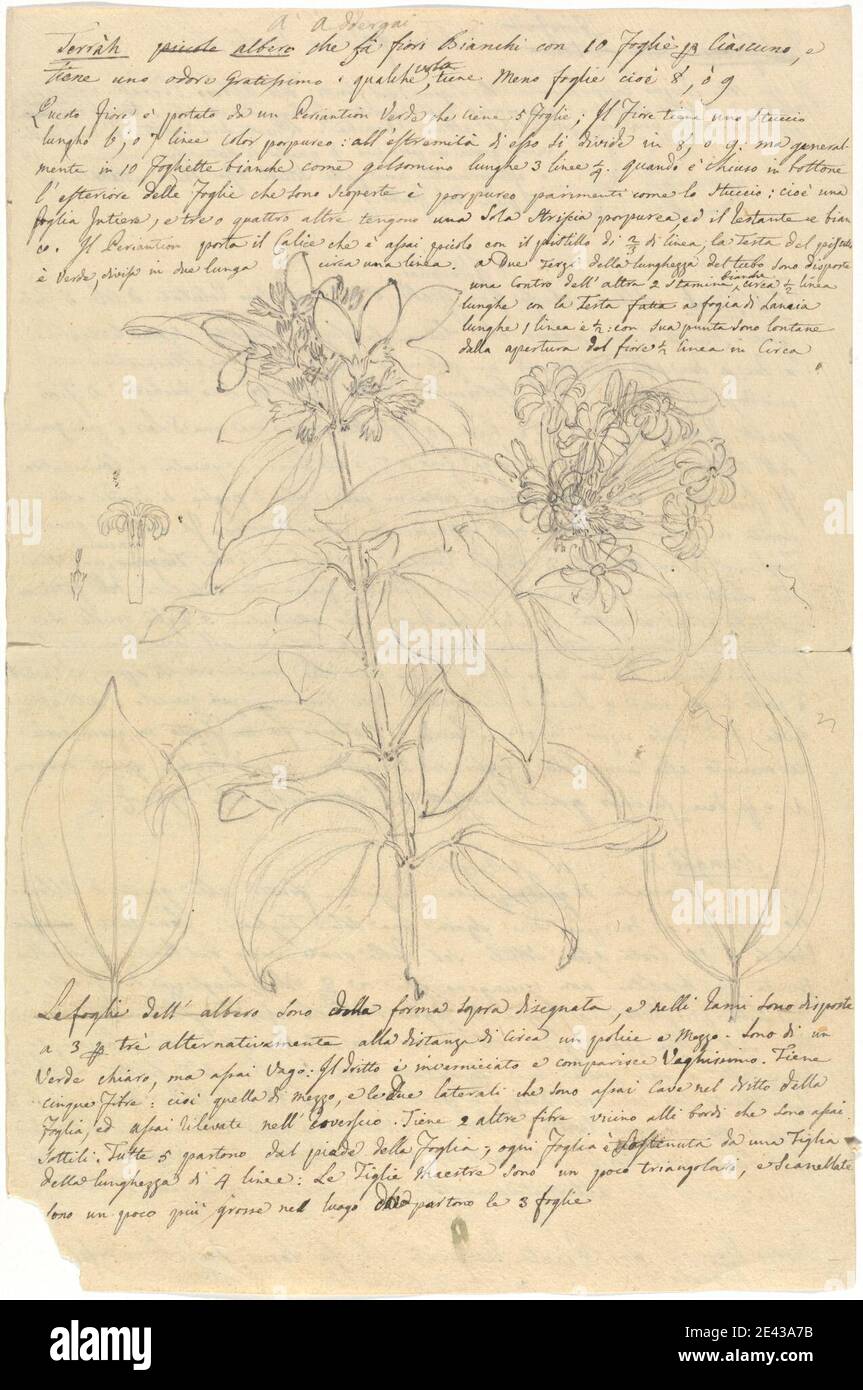 à Addergai
Terràh piccolo albero che fà fiori Bianchi con 10 foglie p ciascuno, e
tiene uno odore gratissimo: qualche volta tiene meno foglie cioè 8, ò 9
Questo fiore è portato da un Periantion Verde che tiene 5 foglie; Il fiore tiene uno stuccio
lungho 6, o 7 linee color porpureo: all'estremità di esso si divide in 8, o 9: ma general-
mente in 10 foghette bianche come gelsomino lunghe 3 linee ¼. quando è chiuso in bottone
l'esteriore delle foglie che sono scoperte è porpureo parimenti come lo stuccio: cioè una
foglia Intiera, e tre o quattro altre tengono una sola striscia porpurea ed il restante e bian
co. Il Periantion porta il Calice che è assai picolo con il pistillo di ⅔ di linea, la testa del
è Verde, divisa in due lunga circa una linea. a Due terzi della lunghezza del tubo sono disposte
una contro dell'altra 2 stamine bianche circa ½ linea
lunghe con la testa fatta a fogia di Lancia
lunghe 1 linea e ½: con sua punta sono lontane
dalla apertura del fiore ½ linea in Circa
Le foglie dell'albero sono della forma sopra disegnata, e nelli rami sono disposte
a 3 p tre alternativamente alla distanza di circa un police e mezzo. sono di un
Verde chiaro, ma assai vago: Il dritto è inverniciato e comparisce Vaghissimo. Tiene
cinque fibre: cioè quella di mezzo, e le due laterali che sono assai cave nel dritto della
foglia, ed assai rilevate nell'roverscio. Tiene 2 altre fibre vicino alli bordi che sono assai
sottili. Tutte 5 partono dal piede della foglia; ogni foglia è sostenuta da una Tiglia
della lunghezza di 4 linee: Le Tiglie maestre sono un poco triangolari, e scanellate
sono un poco più grosse nel luogo dove partono le 3 foglie
alamy
Image ID: 2E43A7B
www.alamy.com